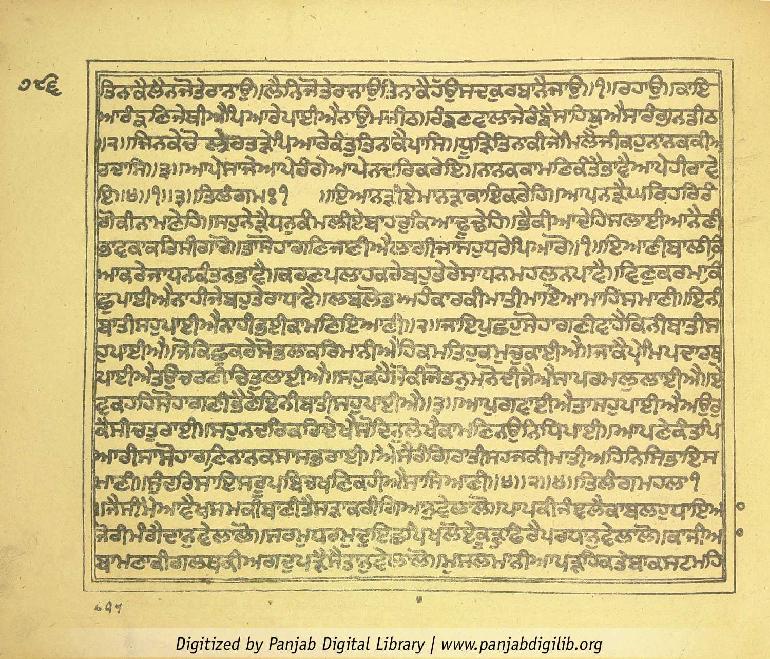 ੭੧੬
ਤਿਨਕੈਲੈਨਜੋਤੇਰਾਨਾਉ॥ਲੈਨਿਜੋਤੇਰਾਨਾਉਤਿਨਾਕੈਹੰਉਸਦਕੁਰਬਾਨੈਜਾਉ॥੧॥ਰਹਾਉ॥ਕਾਇ
ਆਰੰਙਣਿਜੇਥੀਐਪਿਆਰੇਪਾਈਐਨਾਉਮਜੀਠ॥ਰੰਙਣਵਾਲਾਜੇਰੰਙੈਸਾਹਿਬੁਐਸਾਰੰਗੁਨਡੀਠ
॥੨॥ਜਿਨਕੇਚੋਲੇਰਤੜੇਪਿਆਰੇਕੰਤੁਤਿਨਾਕੈਪਾਸਿ॥ਧੂੜਿਤਿਨਾਕੀਜੇਮਿਲੈਜੀਕਹੁਨਾਨਕਕੀਅ
ਰਦਾਸਿ॥੩॥ਆਪੇਸਾਜੇਆਪੇਰੰਗੇਆਪੇਨਦਰਿਕਰੇਇ॥ਨਾਨਕਕਾਮਣਿਕੰਤੈਭਾਵੈਆਪੇਹੀਰਾਵੇ
ਇ॥੪॥੧॥੩॥ਤਿਲੰਗਮਃ੧ ॥ਇਆਨੜੀਏਮਾਨੜਾਕਾਇਕਰੇਹਿ॥ਆਪਨੜੈਘਰਿਹਰਿਰੰ
ਗੋਕੀਨਮਾਣੇਹਿ॥ਸਹੁਨੇੜੈਧਨਕੰਮਲੀਏਬਾਹਰੁਕਿਆਢੂਢੇਹਿ॥ਭੈਕੀਆਦੇਹਿਸਲਾਈਆਨੈਣੀ
ਭਾਵਕਾਕਰਿਸੀਗਾਰੋ॥ਤਾਸੋਹਾਗਣਿਜਾਣੀਐਲਾਗੀਜਾਸਹੁਧਰੇਪਿਆਰੋ॥੧॥ਇਆਣੀਬਾਲੀਕਿ
ਆਕਰੇਜਾਧਨਕੰਤਨਭਾਵੈ॥ਕਰਣਪਲਾਹਕਰੇਬਹੁਤੇਰੇਸਾਧਨਮਹਲੁਨਪਾਵੈ॥ਵਿਣੁਕਰਮਾਕਿ
ਛੁਪਾਈਐਨਾਹੀਜੇਬਹੁਤੇਰਾਧਾਵੈ॥ਲਬਲੋਭਅਹੰਕਾਰਕੀਮਾਤੀਮਾਇਆਮਾਹਿਸਮਾਣੀ॥ਇਨੀ
ਬਾਤੀਸਹੁਪਾਈਐਨਾਹੀਭਈਕਾਮਣਿਇਆਣੀ॥੨॥ਜਾਇਪੁਛਹੁਸੋਹਾਗਣੀਵਾਹੈਕਿਨੀਬਾਤੀਸ
ਹੁਪਾਈਐ॥ਜੋਕਿਛੁਕਰੇਸੋਭਲਾਕਰਿਮਾਨੀਐਹਿਕਮਤਿਹੁਕਮੁਚੁਕਾਈਐ॥ਜਾਕੈਪ੍ਰੇਮਿਪਦਾਰਥੁ
ਪਾਈਐਤਉਚਰਣੀਚਿਤੁਲਾਈਐ॥ਸਹੁਕਹੈਸੋਕੀਜੈਤਨੁਮਨੋਦੀਜੈਐਸਾਪਰਮਲੁਲਾਈਐ॥ਏ
ਵਕਹਹਿਸੋਹਾਗਣੀਭੈਣੇਇਨੀਬਾਤੀਸਹੁਪਾਈਐ॥੩॥ਆਪੁਗਵਾਈਐਤਾਸਹੁਪਾਈਐਅਉਰੁ
ਕੈਸੀਚਤੁਰਾਈ॥ਸਹੁਨਦਰਿਕਰਿਦੇਖੈਸੋਦਿਨੁਲੇਖੈਕਾਮਣਿਨਉਨਿਧਿਪਾਈ॥ਆਪਣੇਕੰਤਪਿ
ਆਰੀਸਾਸੋਹਾਗਣਿਨਾਨਕਸਾਸਭਰਾਈ॥ਐਸੈਰੰਗਿਰਾਤੀਸਹਜਕੀਮਾਤੀਅਹਿਨਿਸਿਭਾਇਸ
ਮਾਣੀ॥ਸੁੰਦਰਿਸਾਇਸਰੂਪਬਿਚਖਣਿਕਹੀਐਸਾਸਿਆਣੀ॥੪॥੨॥੪॥ਤਿਲੰਗਮਹਲਾ੧
॥ਜੈਸੀਮੈਆਵੈਖਸਮਕੀਬਾਣੀਤੈਸੜਾਕਰੀਗਿਆਨੁਵੇਲਾਲੋ॥ਪਾਪਕੀਜੰਞਲੈਕਾਬਲਹੁਧਾਇਆ
ਜੋਰੀਮੰਗੈਦਾਨੁਵੇਲਾਲੋ॥ਸਰਮੁਧਰਮੁਦੁਇਛਪਿਖਲੋਏਕੂੜੁਫਿਰੈਪਰਧਾਨੁਵੇਲਾਲੋ॥ਕਾਜੀਆ
ਬਾਮਣਾਕੀਗਲਥਕੀਅਗਦੁਪੜੈਸੈਤਾਨੁਵੇਲਾਲੋ॥ਮੁਸਲਮਾਨੀਆਪੜਹਿਕਤੇਬਾਕਸਟਮਹਿ
Digitized by Panjab Digital Library | www.panjabdigilib.org